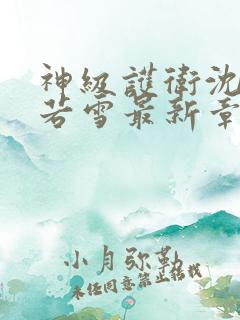 神級護衛沈
若雪最新章
小月弥勒
未经同意禁止转载